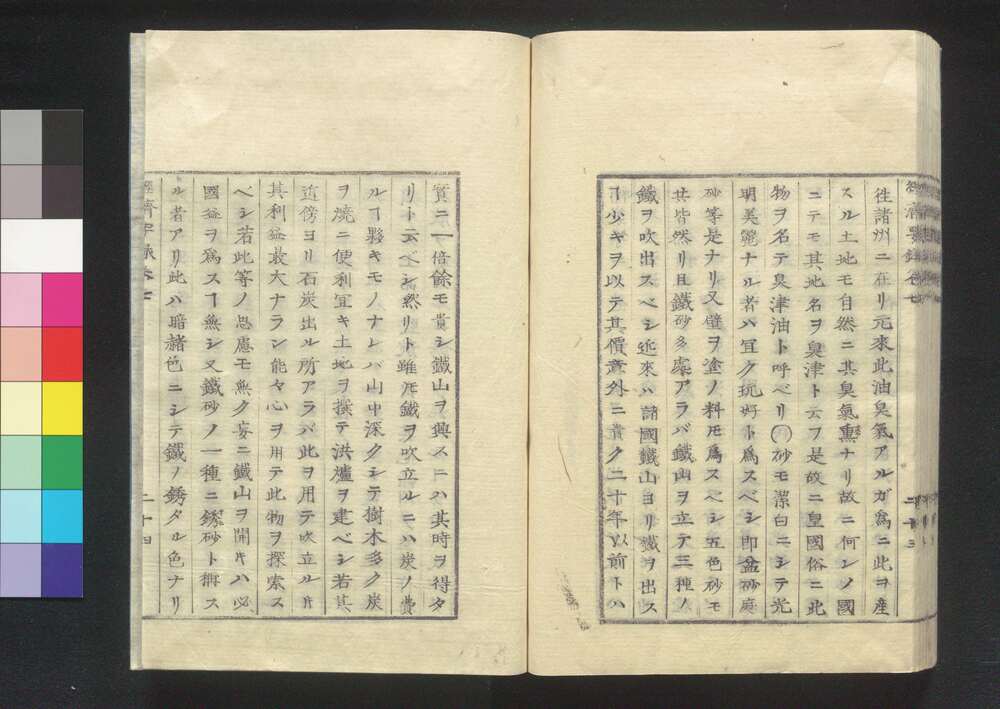 往諸州ニ在リ元來此油臭氣アルガ爲ニ此ヲ産
スル土地モ自然ニ其臭氣熏ナリ故ニ何レノ國
ニテモ其地名ヲ臭津ト云フ是故ニ皇國俗ニ此
物ヲ名テ臭津油ト呼ベリ○砂モ潔白ニシテ光
明美麗ナル者ハ宜ク玩好ト爲スベシ即盆砂庭
砂等是ナリ又壁ヲ塗ノ料𪜈爲スベシ五色砂モ
其皆然リ且鐵砂多ク處アラバ鐵山ヲ立テ三種ノ
鐵ヲ吹出スベシ近來ハ諸國鐵山ヨリ鐵ヲ出ス
ヿ少キヲ以テ其價意外ニ貴ク二十年以前トハ
實ニ一倍餘モ貴シ鐵山ヲ興スニハ其時ヲ得タ
リト云ベシ然リト雖𪜈鐵ヲ吹立ルニハ炭ノ費
ルヿ夥キモノナレバ山中深クシテ樹木多ク炭
ヲ燒ニ便利宜キ土地ヲ撰テ洪爐ヲ建ベシ若其
近傍ヨリ石炭出ル所アラバ此ヲ用テ吹立ル片
其利益最大ナラン能々心ヲ用テ此物ヲ探索ス
ベシ若此等ノ思慮モ無ク妄ニ鐵山ヲ開キハ必
國益ヲ爲スヿ無シ又鐵砂ノ一種ニ銹砂ト稱ス
ル者アリ此ハ暗赭色ニシテ鐵ノ銹タル色ナリ
二十四